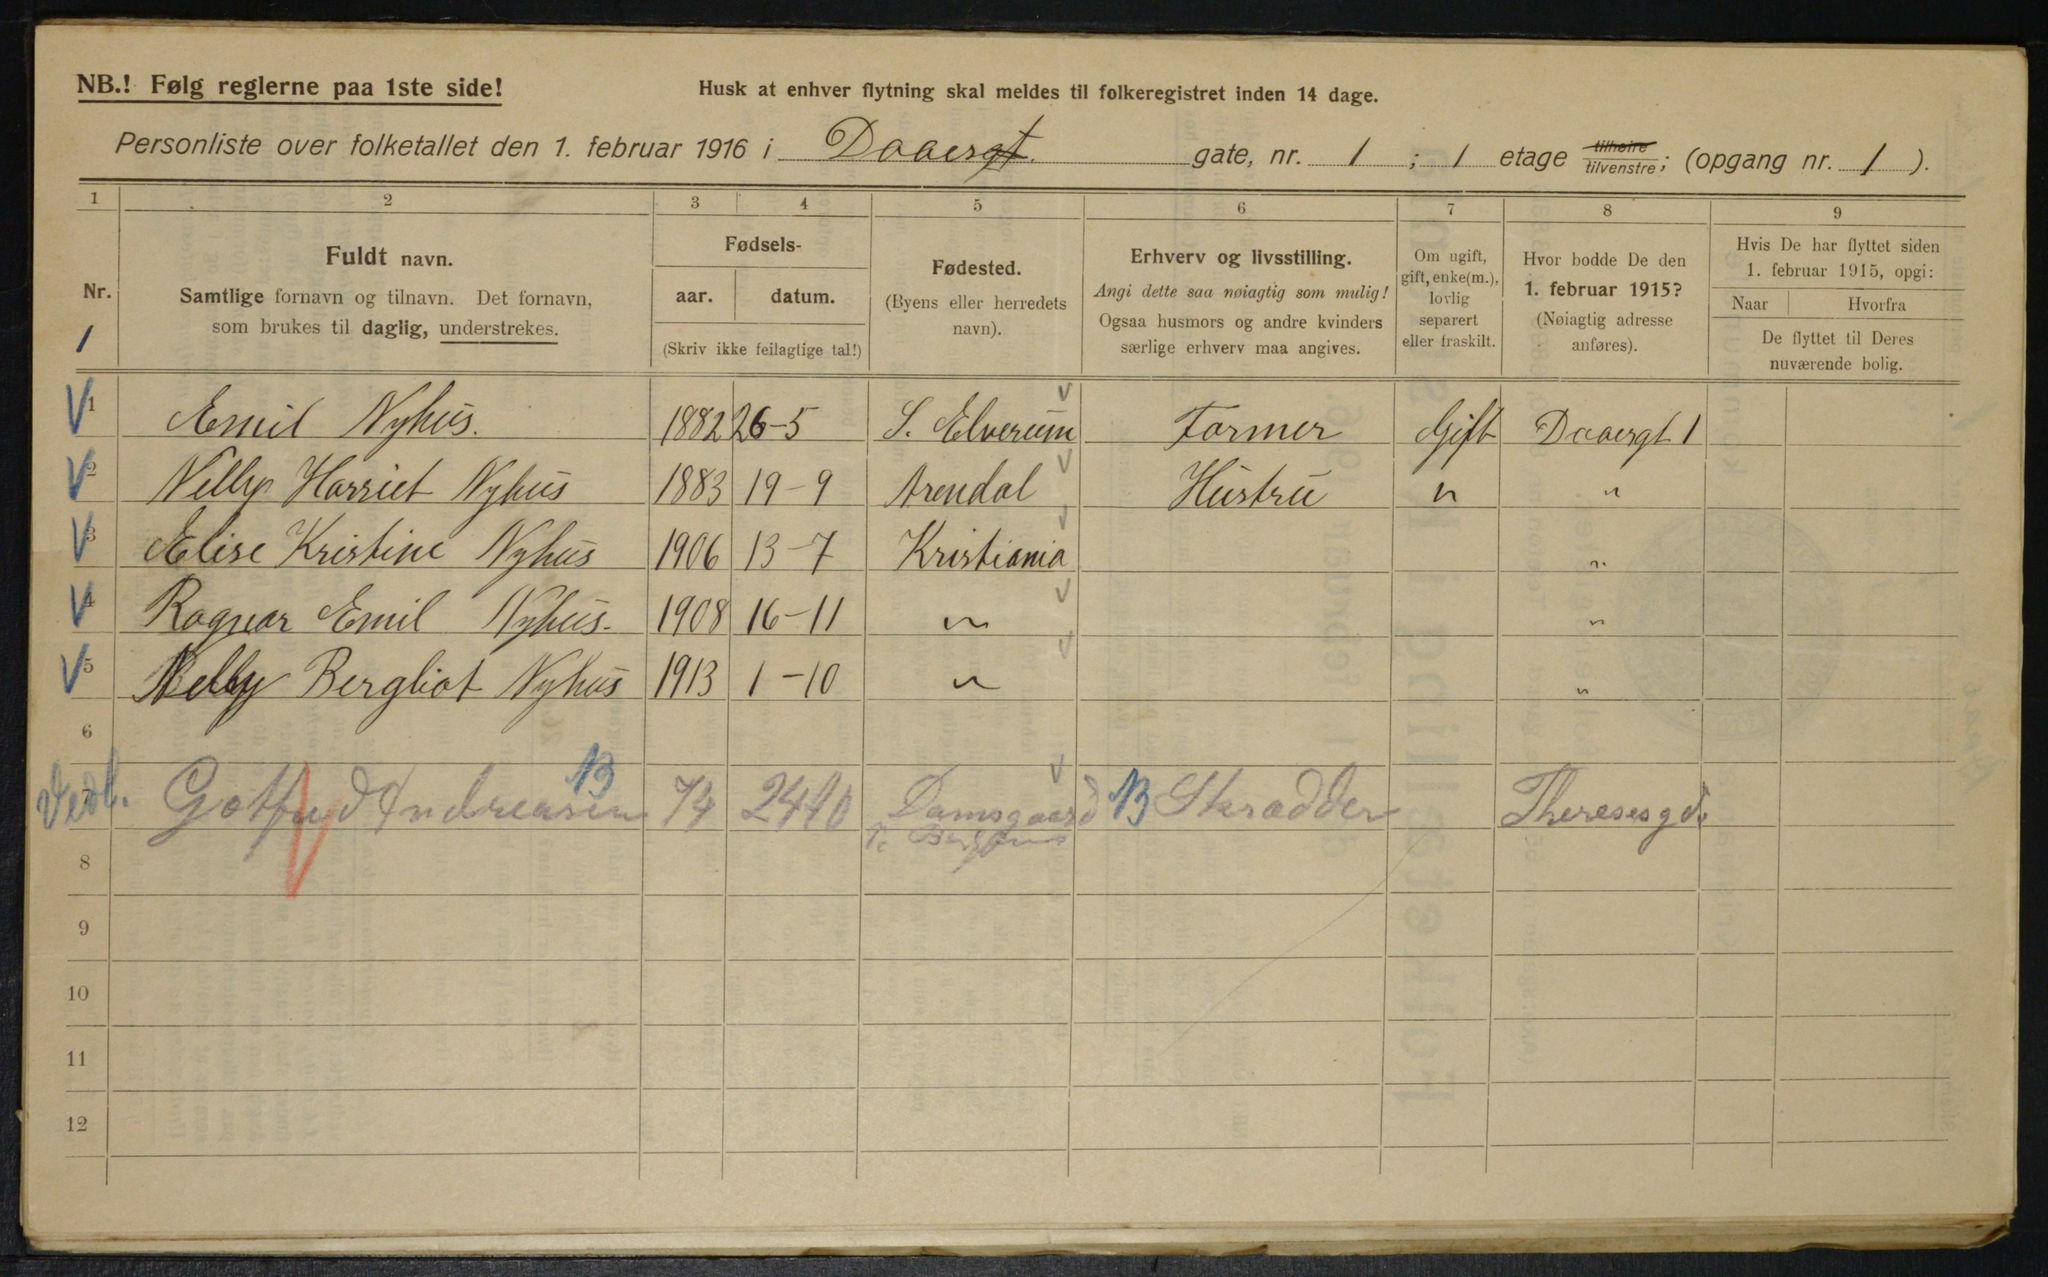 NB.! Følg reglerne paa 1ste side!
Husk at enhver flytning skal meldes til folkeregistret inden 14 dage.
Personliste over folketallet den 1. februar 1916 i Daaesgt. gate, nr. 1 ; 1 etage tilhøire/tilvenstre; (opgang nr. 1 ).
1 2 3 4 5 6 7 8 9
Nr.
1
Fuldt navn.
Samtlige fornavn og tilnavn. Det fornavn,
som brukes til daglig, understrekes.
Fødsels-
aar. datum.
(Skriv ikke feilagtige tal!)
Fødested.
(Byens eller herredets
navn).
Erhverv og livsstilling.
Angi dette saa nøiagtig som mulig!
Ogsaa husmors og andre kvinders
særlige erhverv maa angives.
Om ugift,
gift, enke(m.),
lovlig
separert
eller fraskilt.
Hvor bodde De den
1. februar 1915?
(Nøiagtig adresse
anføres).
Hvis De har flyttet siden
1. februar 1915, opgi:
Naar Hvorfra
De flyttet til Deres
nuværende bolig.
1 Emil Nyhus. 1882 26-5 S. Elverum Former Gift Daaesgt 1
2 Nelly Harriet Nyhus 1883 19-9 Arendal Hustru " "
3 Elise Kristine Nyhus 1906 13-7 Kristiania "
4 Ragnar Emil Nyhus. 1908 16-11 " "
5 Nelly Bergliot Nyhus 1913 1-10 " "
6
7 Gotfred Andreasen 74 24/10 Damsgaard Skrædder Theresesgd.
8
9
10
11
12